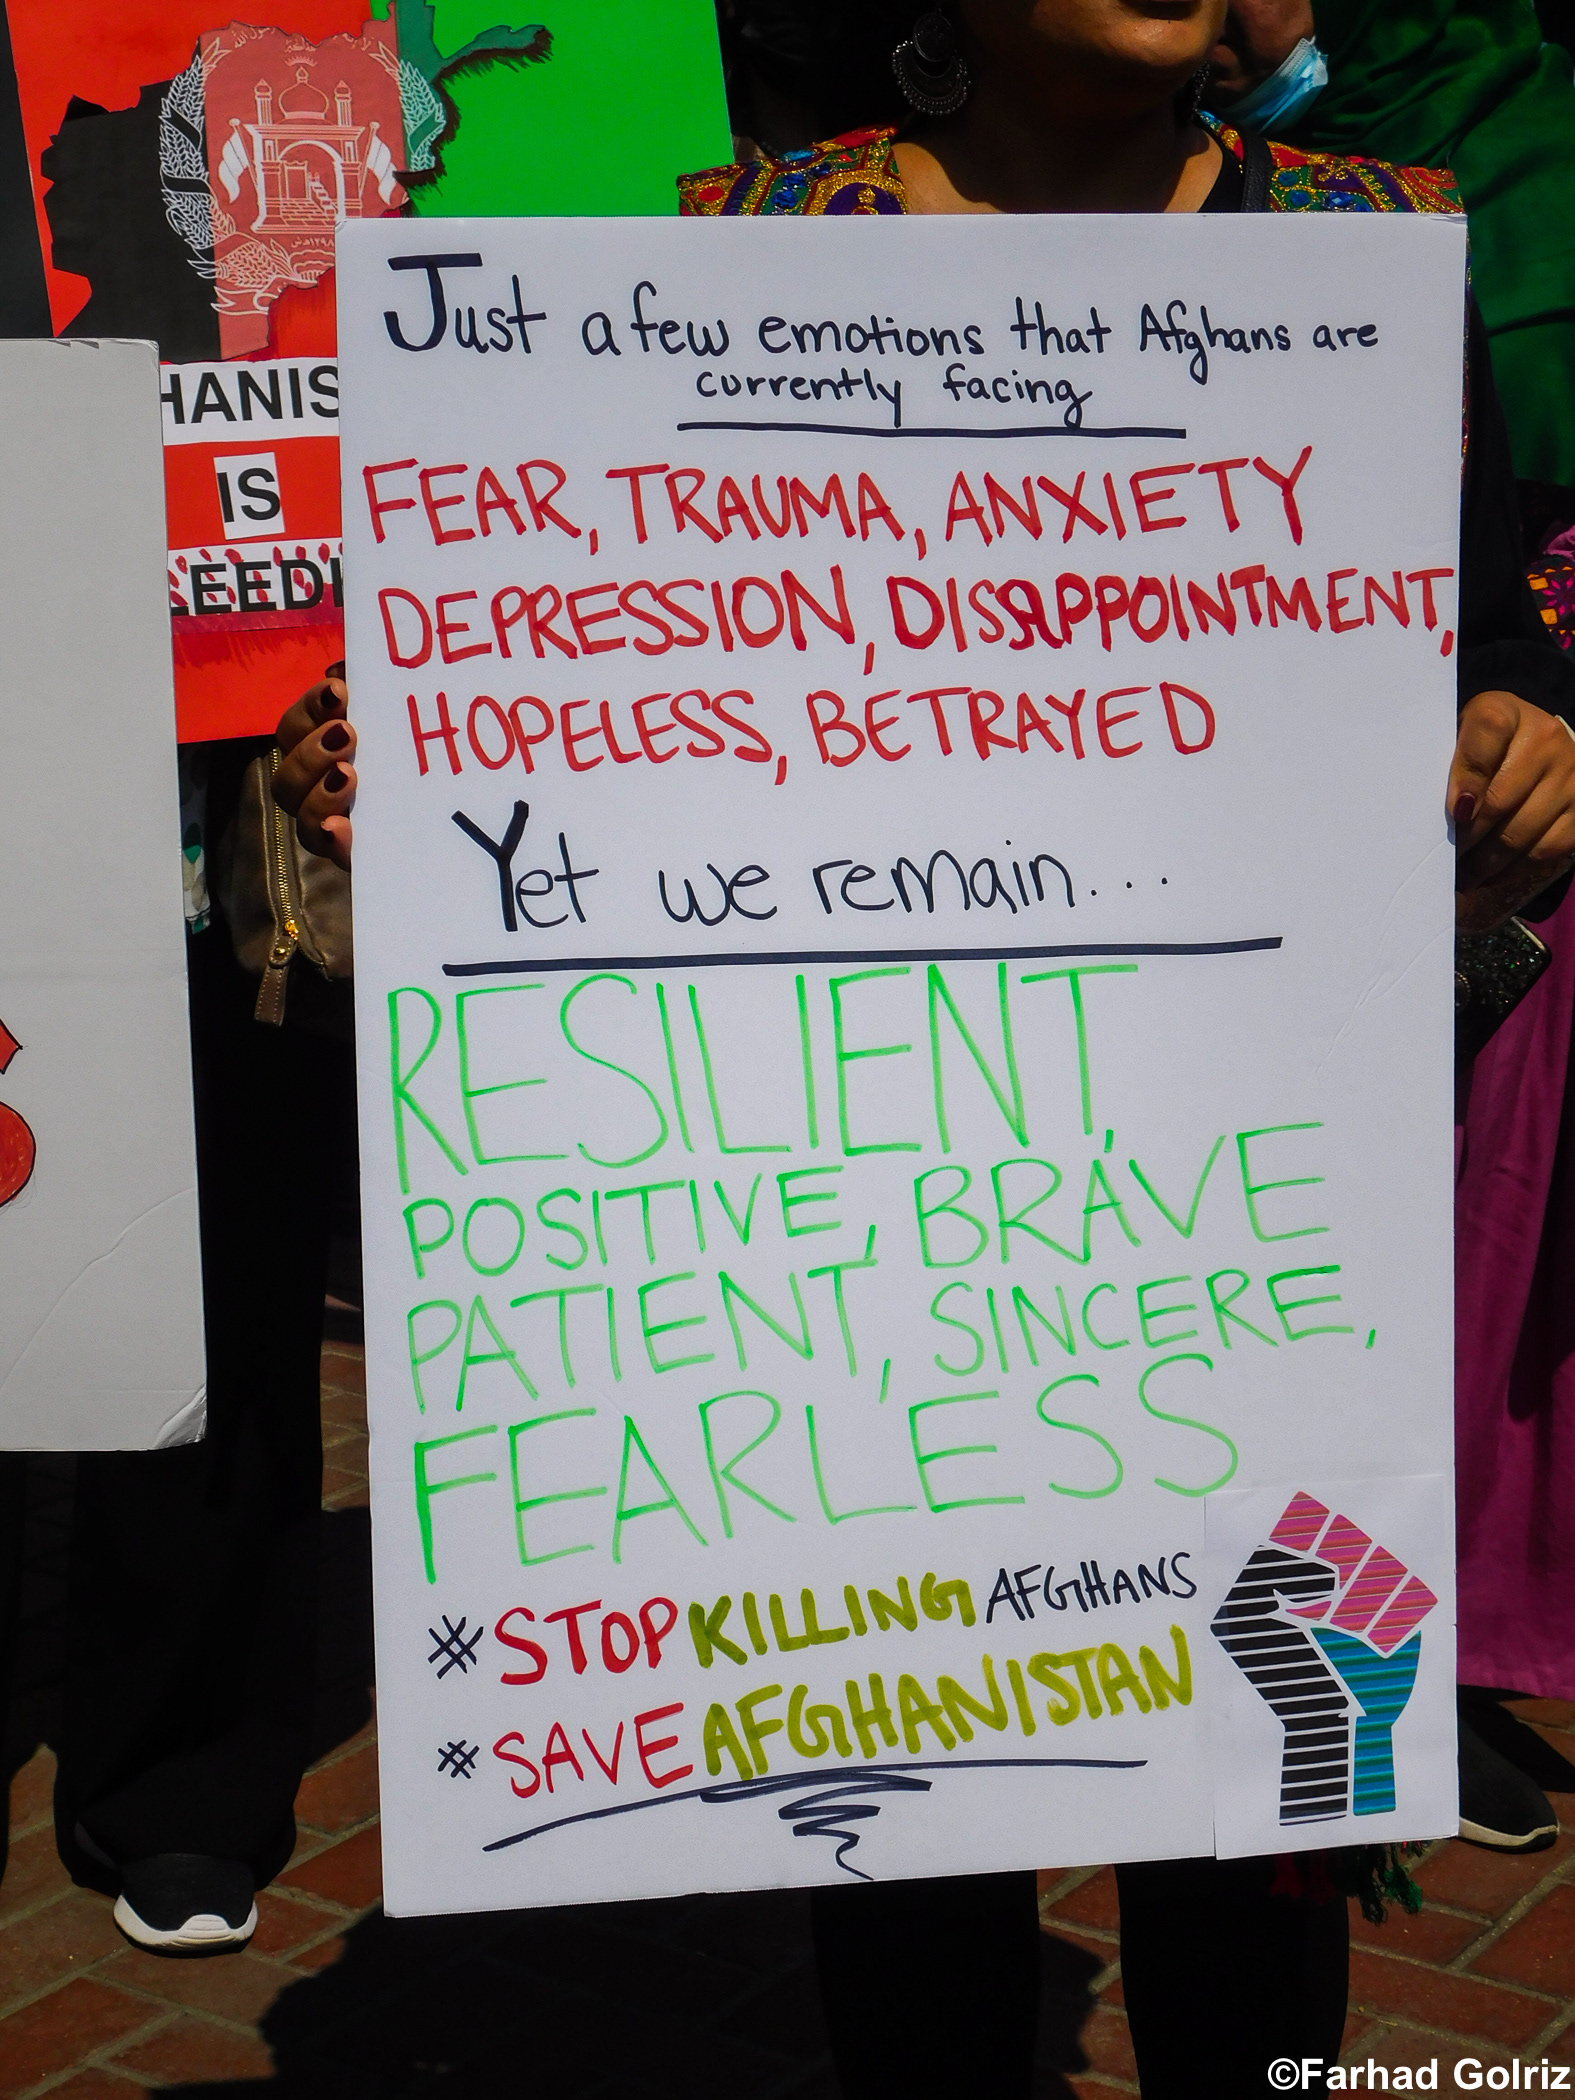 HANIS
IS
LEEDI
Just a few emotions that Afghans are
currently facing
FEAR, TRAUMA, ANXIETY
DEPRESSION, DISAPPOINTMENT,
HOPELESS, BETRAYED
Yet we remain...
RESILIENT,
POSITIVE, BRAVE
PATIENT, SINCERE,
FEARLESS
#STOPKILLINGAFGHANS
#SAVEAFGHANISTAN
©Farhad Golriz